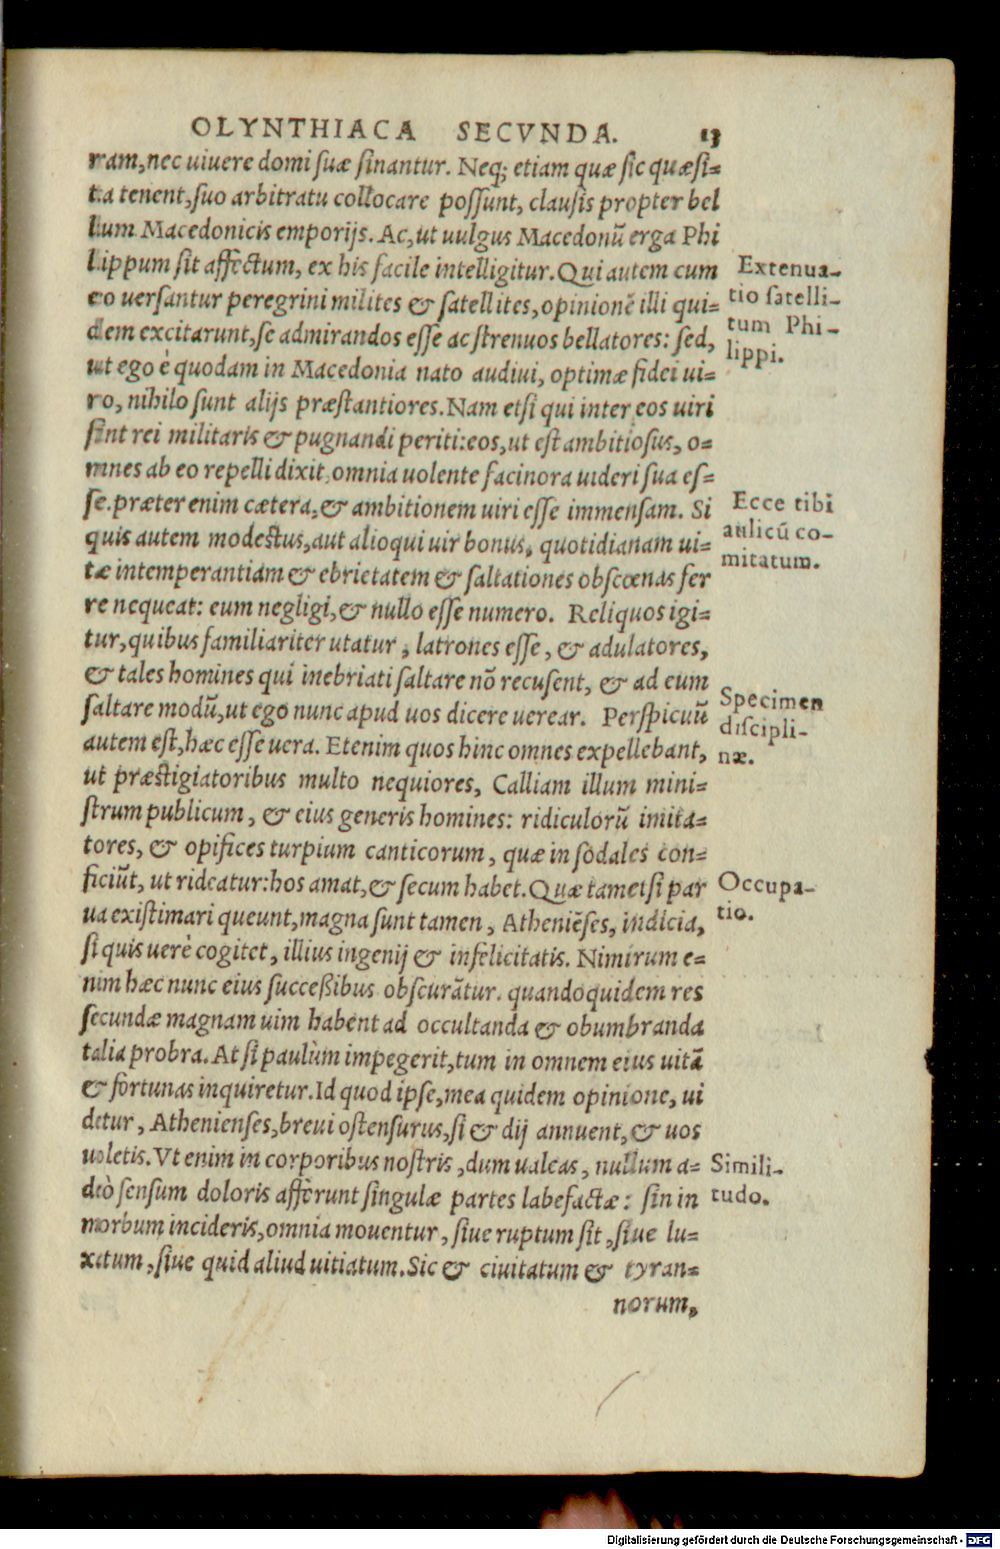 OLYNTHIACA SECVNDA. 13
ram, nec uiuere domi suæ sinantur. Neq; etiam quæ sic quæsi=
ta tenent, suo arbitratu collocare possunt, clausis propter bel
lum Macedonicis emporijs. Ac, ut uulgus Macedonū erga Phi
lippum sit affectum, ex his facile intelligitur. Qui autem cum
eo uersantur peregrini milites & satellites, opinionē illi qui=
dem excitarunt, se admirandos esse ac strenuos bellatores: sed,
ut ego è quodam in Macedonia nato audiui, optimæ fidei ui=
ro, nihilo sunt alijs præstantiores. Nam etsi qui inter eos uiri
sint rei militaris & pugnandi periti: eos, ut est ambitiosus, o=
mnes ab eo repelli dixit, omnia uolente facinora uideri sua es=
se. præter enim cætera, & ambitionem uiri esse immensam. Si
quis autem modestus, aut alioqui uir bonus, quotidianam ui=
tæ intemperantiam & ebrietatem & saltationes obscœnas fer
re nequeat: eum negligi, & nullo esse numero. Reliquos igi=
tur, quibus familiariter utatur, latrones esse, & adulatores,
& tales homines qui inebriati saltare nō recusent, & ad eum
saltare modū, ut ego nunc apud uos dicere uerear. Perspicuū
autem est, hæc esse uera. Etenim quos hinc omnes expellebant,
ut præstigiatoribus multo nequiores, Calliam illum mini=
strum publicum, & eius generis homines: ridiculorū imita=
tores, & opifices turpium canticorum, quæ in sodales con=
ficiūt, ut rideatur: hos amat, & secum habet. Quæ tametsi par
ua existimari queunt, magna sunt tamen, Atheniēses, indicia,
si quis uerè cogitet, illius ingenij & infelicitatis. Nimirum e=
nim hæc nunc eius successibus obscurātur. quandoquidem res
secundæ magnam uim habent ad occultanda & obumbranda
talia probra. At si paulùm impegerit, tum in omnem eius uitā
& fortunas inquiretur. Id quod ipse, mea quidem opinione, ui
detur, Athenienses, breui ostensurus, si & dij annuent, & uos
uoletis. Vt enim in corporibus nostris, dum ualeas, nullum a=
deò sensum doloris afferunt singulæ partes labefactæ: sin in
morbum incideris, omnia mouentur, siue ruptum sit, siue lu=
xatum, siue quid aliud uitiatum. Sic & ciuitatum & tyran=
norum,
Extenua-
tio satelli-
tum Phi-
lippi.
Ecce tibi
aulicū co-
mitatum.
Specimen
discipli-
næ.
Occupa-
tio.
Simili-
tudo.
Digitalisierung gefördert durch die Deutsche Forschungsgemeinschaft - DFG